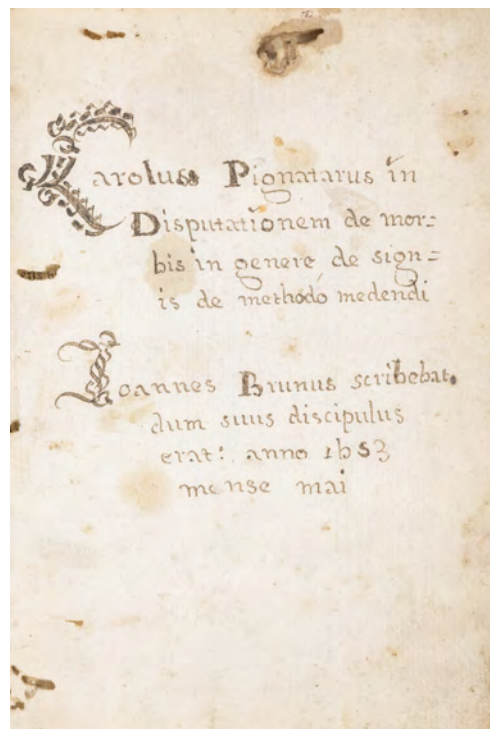 Caroluss Pignatarus in
Disputationem de mor=
bis in genere de sign=
is de methodo medendi
Ioannes Brunus scribebat.
dum suus discipulus
erat: anno 1653
mense mai